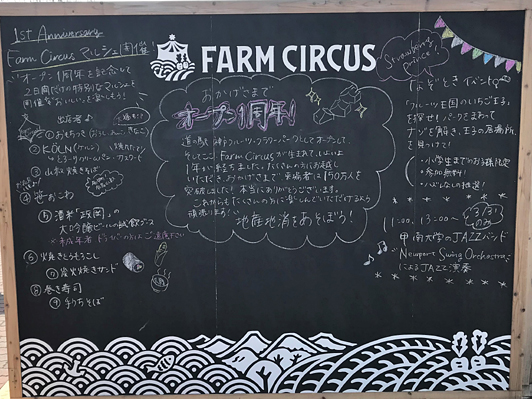 1st Anniversary
Farm Circus マルシェ開催!
"オープン1周年を記念して
2日間だけの特別なマルシェを
開催 "おいしい"を楽しもう!
出店者♪
① おもちつき
② KÖLN
③ 山本焼きそば
④ 笹おこわ
大吟醸ビールの試飲ブース
⑥ 焼きとうもろこし
⑦ 炭火焼きサンド
⑧ 巻き寿司
⑨ 手打ちそば
FARM CIRCUS
おかげさまで
オープン1周年!
道の駅 神戸フルーツ・フラワーパークとしてオープンして、
そしてここ Farm Circus が生まれて、いよいよ
1年が経ちました。たくさんの方にお越し
いただき、おかげさまで 来場者は150万人を
突破しました! 本当にありがとうございます。
これからもたくさんの方に楽しんでいただけるよう
頑張ります!
地産地消をあそぼう!
Strawberry
prince!
なぞときイベント
"フルーツ王国のいちご王子"
を探せ! パークをまわって
ナゾを解き、王子の居場所
を見つけて!
・小学生までのお子様限定
・参加無料!
・ハズレなしの抽選!
3/31
のみ
11:00、13:00〜
甲南大学のJAZZバンド
"Newport Swing Orchestra"
によるJAZZ演奏